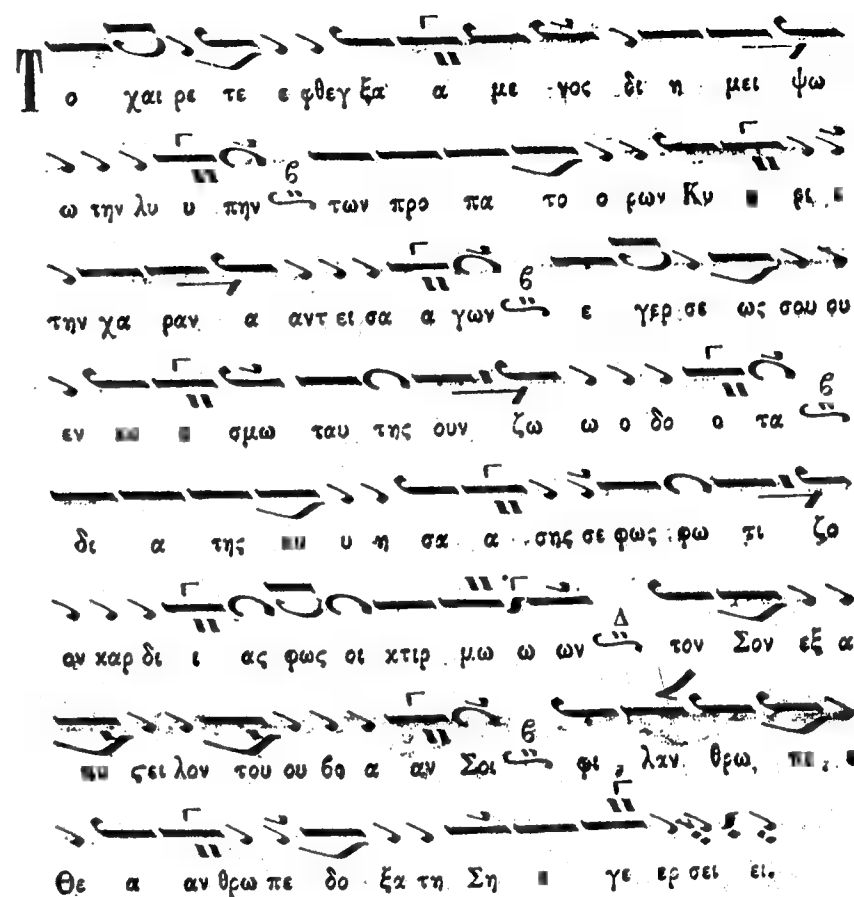 Το χαι ρε τε ε φθεγ ξα α με νος δι η μει ψω
ω την λυ υ πην β των προ πα το ο ρων Κυ ρι
την χα ραν α αντ ει σα α γων β ε γερ σε ως σου ου
εν σμω ταυ της ουν ζω ω ο δο ο τα β
δι α της υ η σα α σης σε φως φω τι ζο
ον καρ δι ι ας φως οι κτιρ μω ω ων Δ τον Σον εξ α
ϛει λον του ου βο α αν Σοι β φι λαν θρω
Θε α αν θρω πε δο ξα τη Ση γε ερ σει ει.